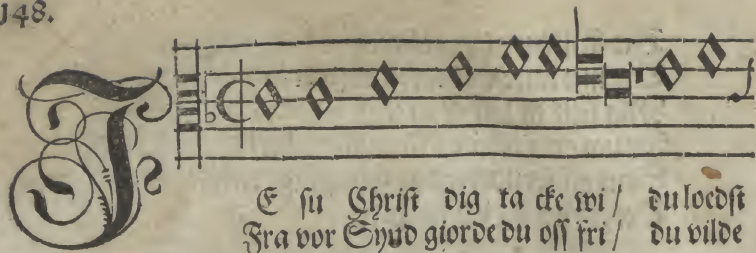 148.
JE su Christ dig ta cke wi / du loedst
Fra vor Synd giorde du oss fri / du vilde